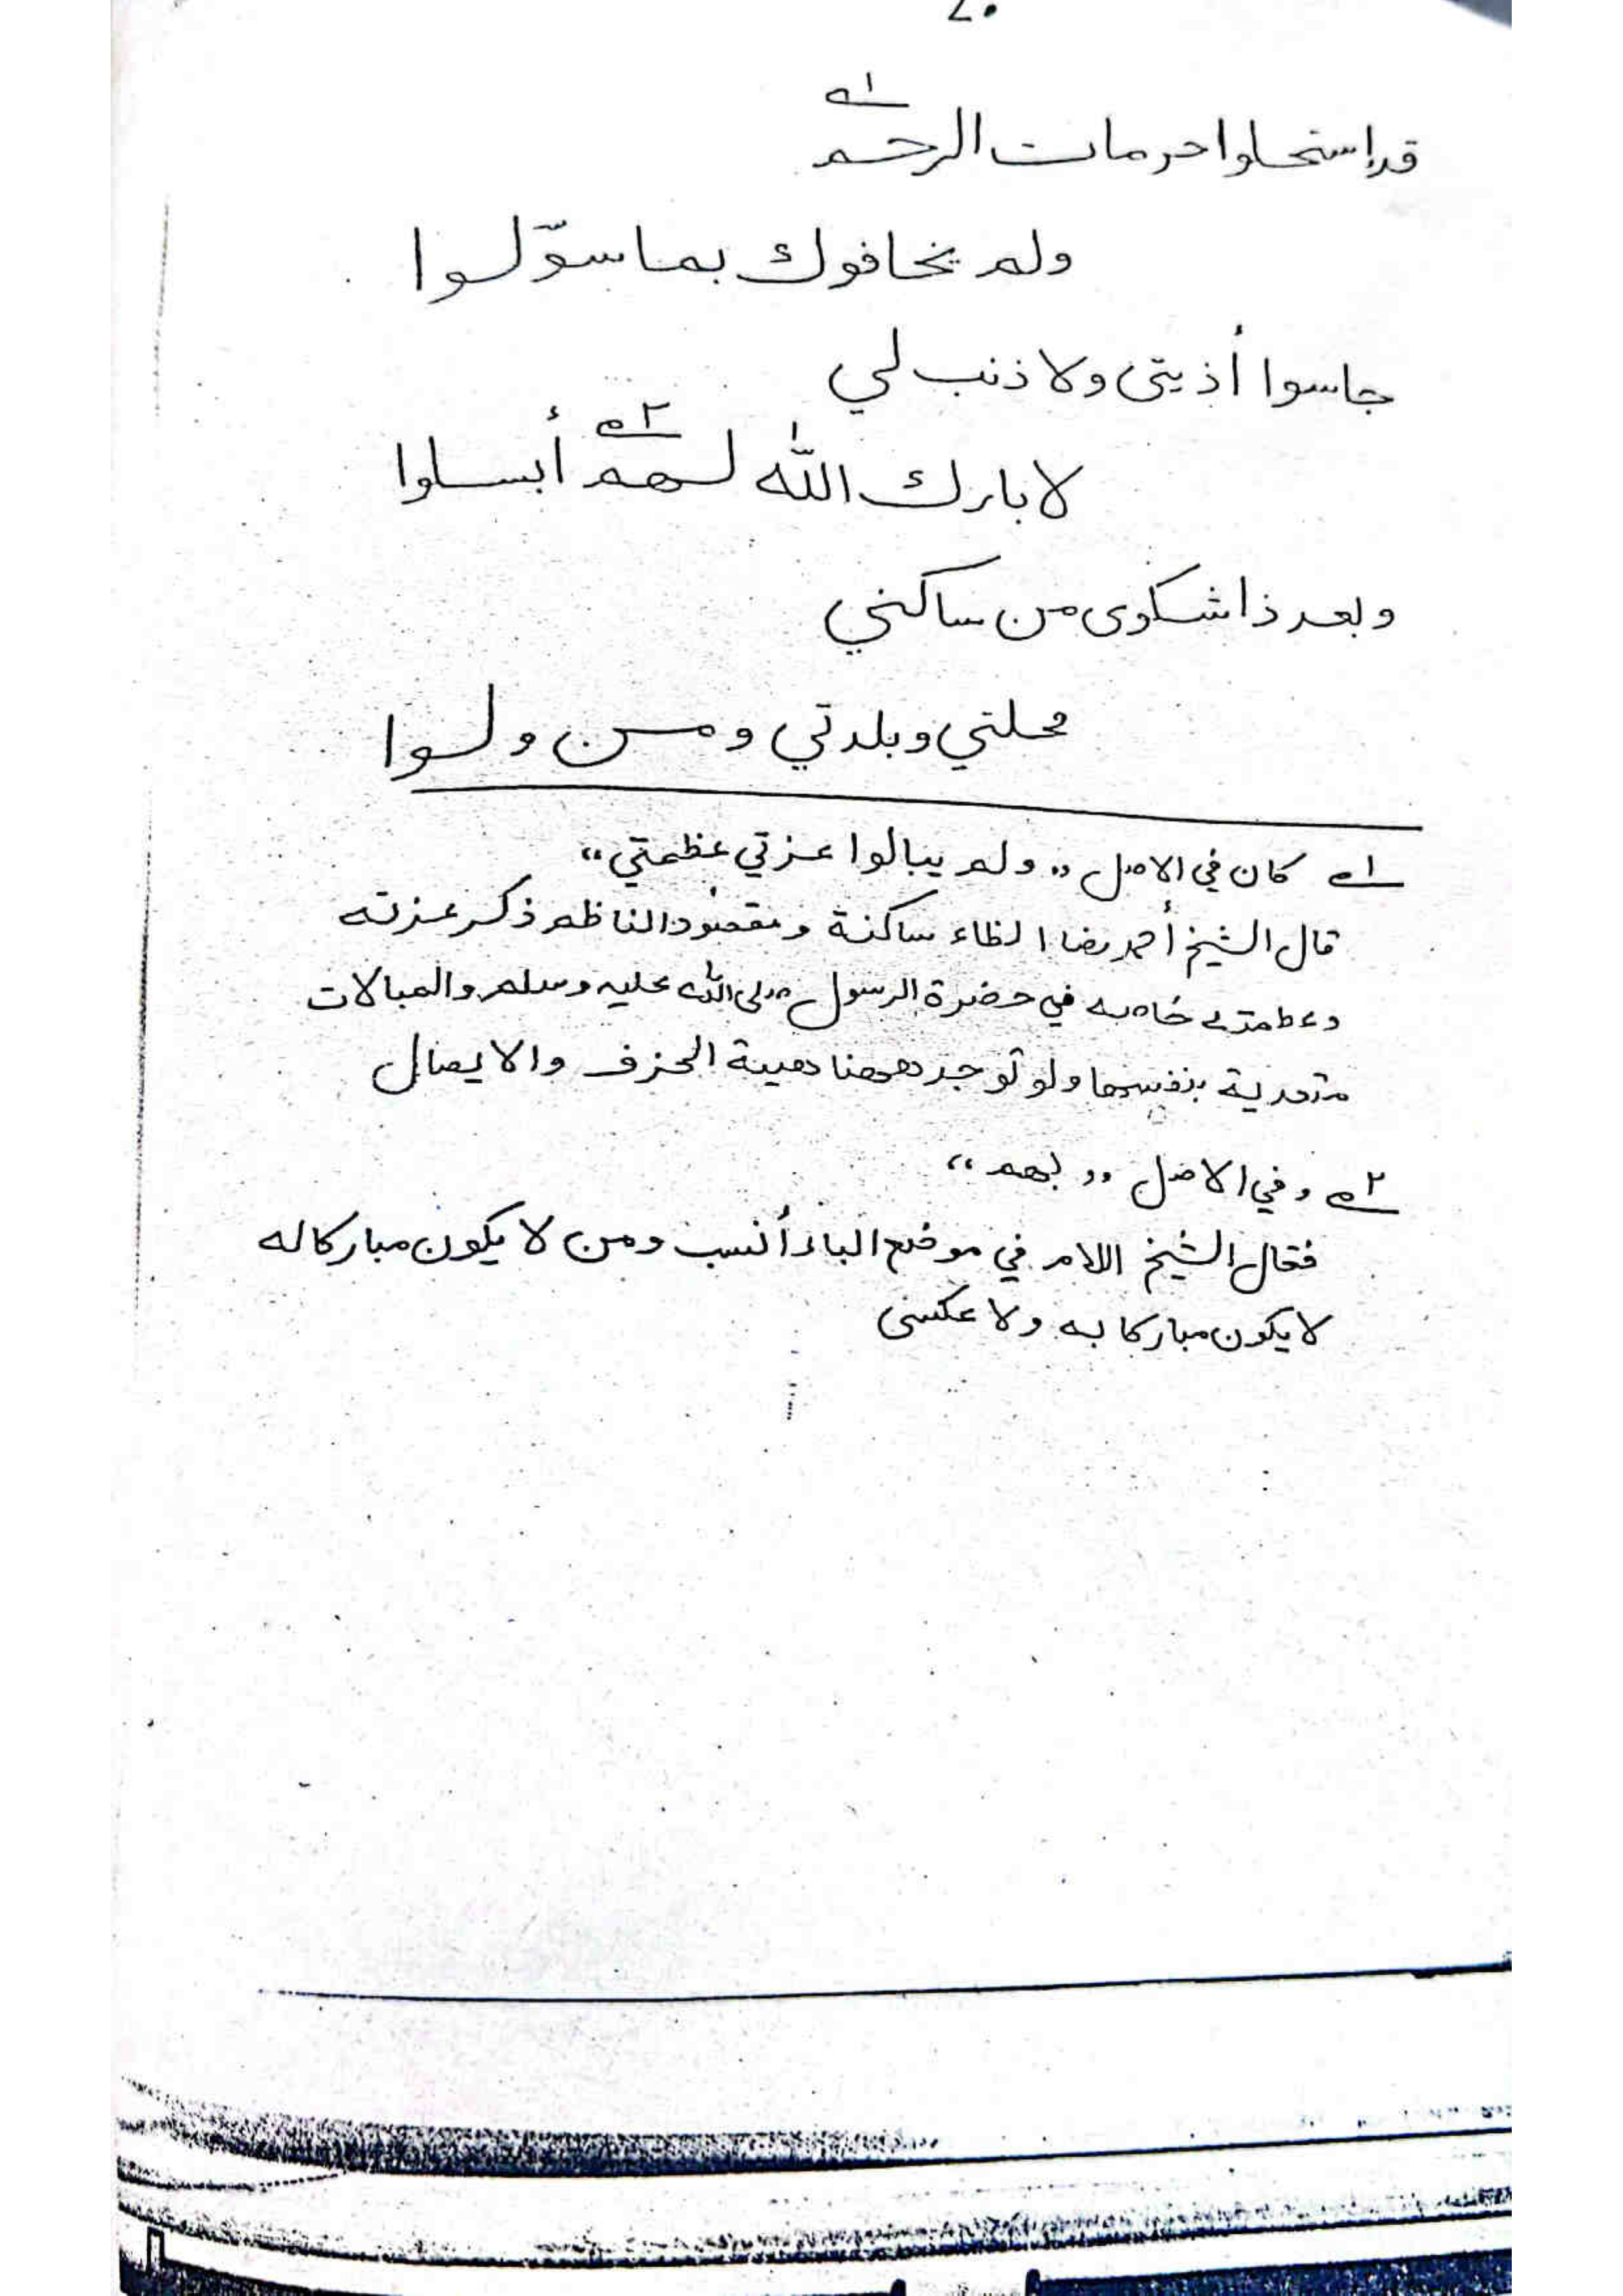 قد إستحلوا حرمات الرحم ١ه
ولم يخافوك بما سوّلوا
جاسوا أذيتى ولا ذنب لي
لا بارك الله لهم ٢ه أبسلوا
وبعد ذا شكوى من ساكني
محلتي وبلدتي ومن ولوا
١ه كان في الاصل ,, ولم يبالوا عزتي عظمتي ،،
قال الشيخ أحمد رضا الظاء ساكنة ومقصود الناظم ذكر عزته
وعظمته خاصة في حضرة الرسول صلى الله عليه وسلم والمبالات
متعدية بنفسها ولو توجد ههنا الحزف والايصال
٢ه وفي الاصل ,, بهم ،،
فقال الشيخ اللام في موضع الباء أنسب ومن لا يكون مباركا له
لا يكون مباركا به ولا عكس